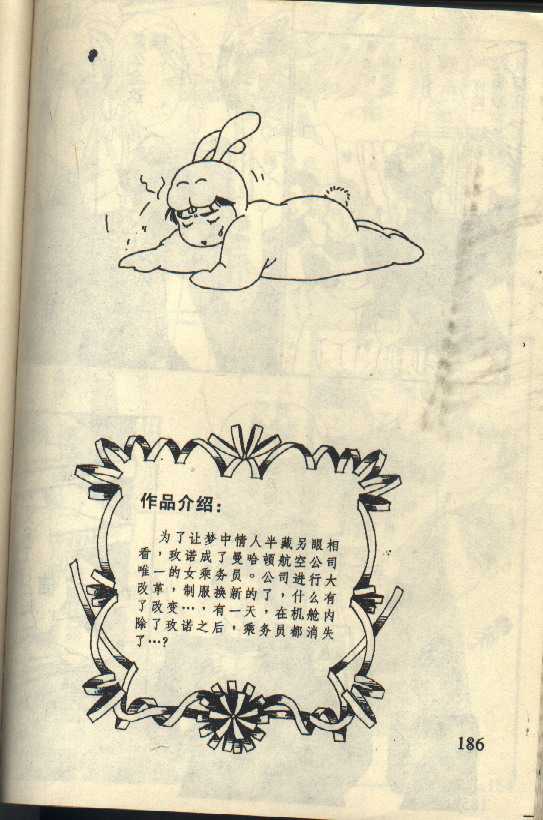 作品介绍：
为了让梦中情人半藏另眼相
看，玫诺成了曼哈顿航空公司
唯一的女乘务员。公司进行大
改革，制服换新的了，什么有
了改变…，有一天，在机舱内
除了玫诺之后，乘务员都消失
了…？
186